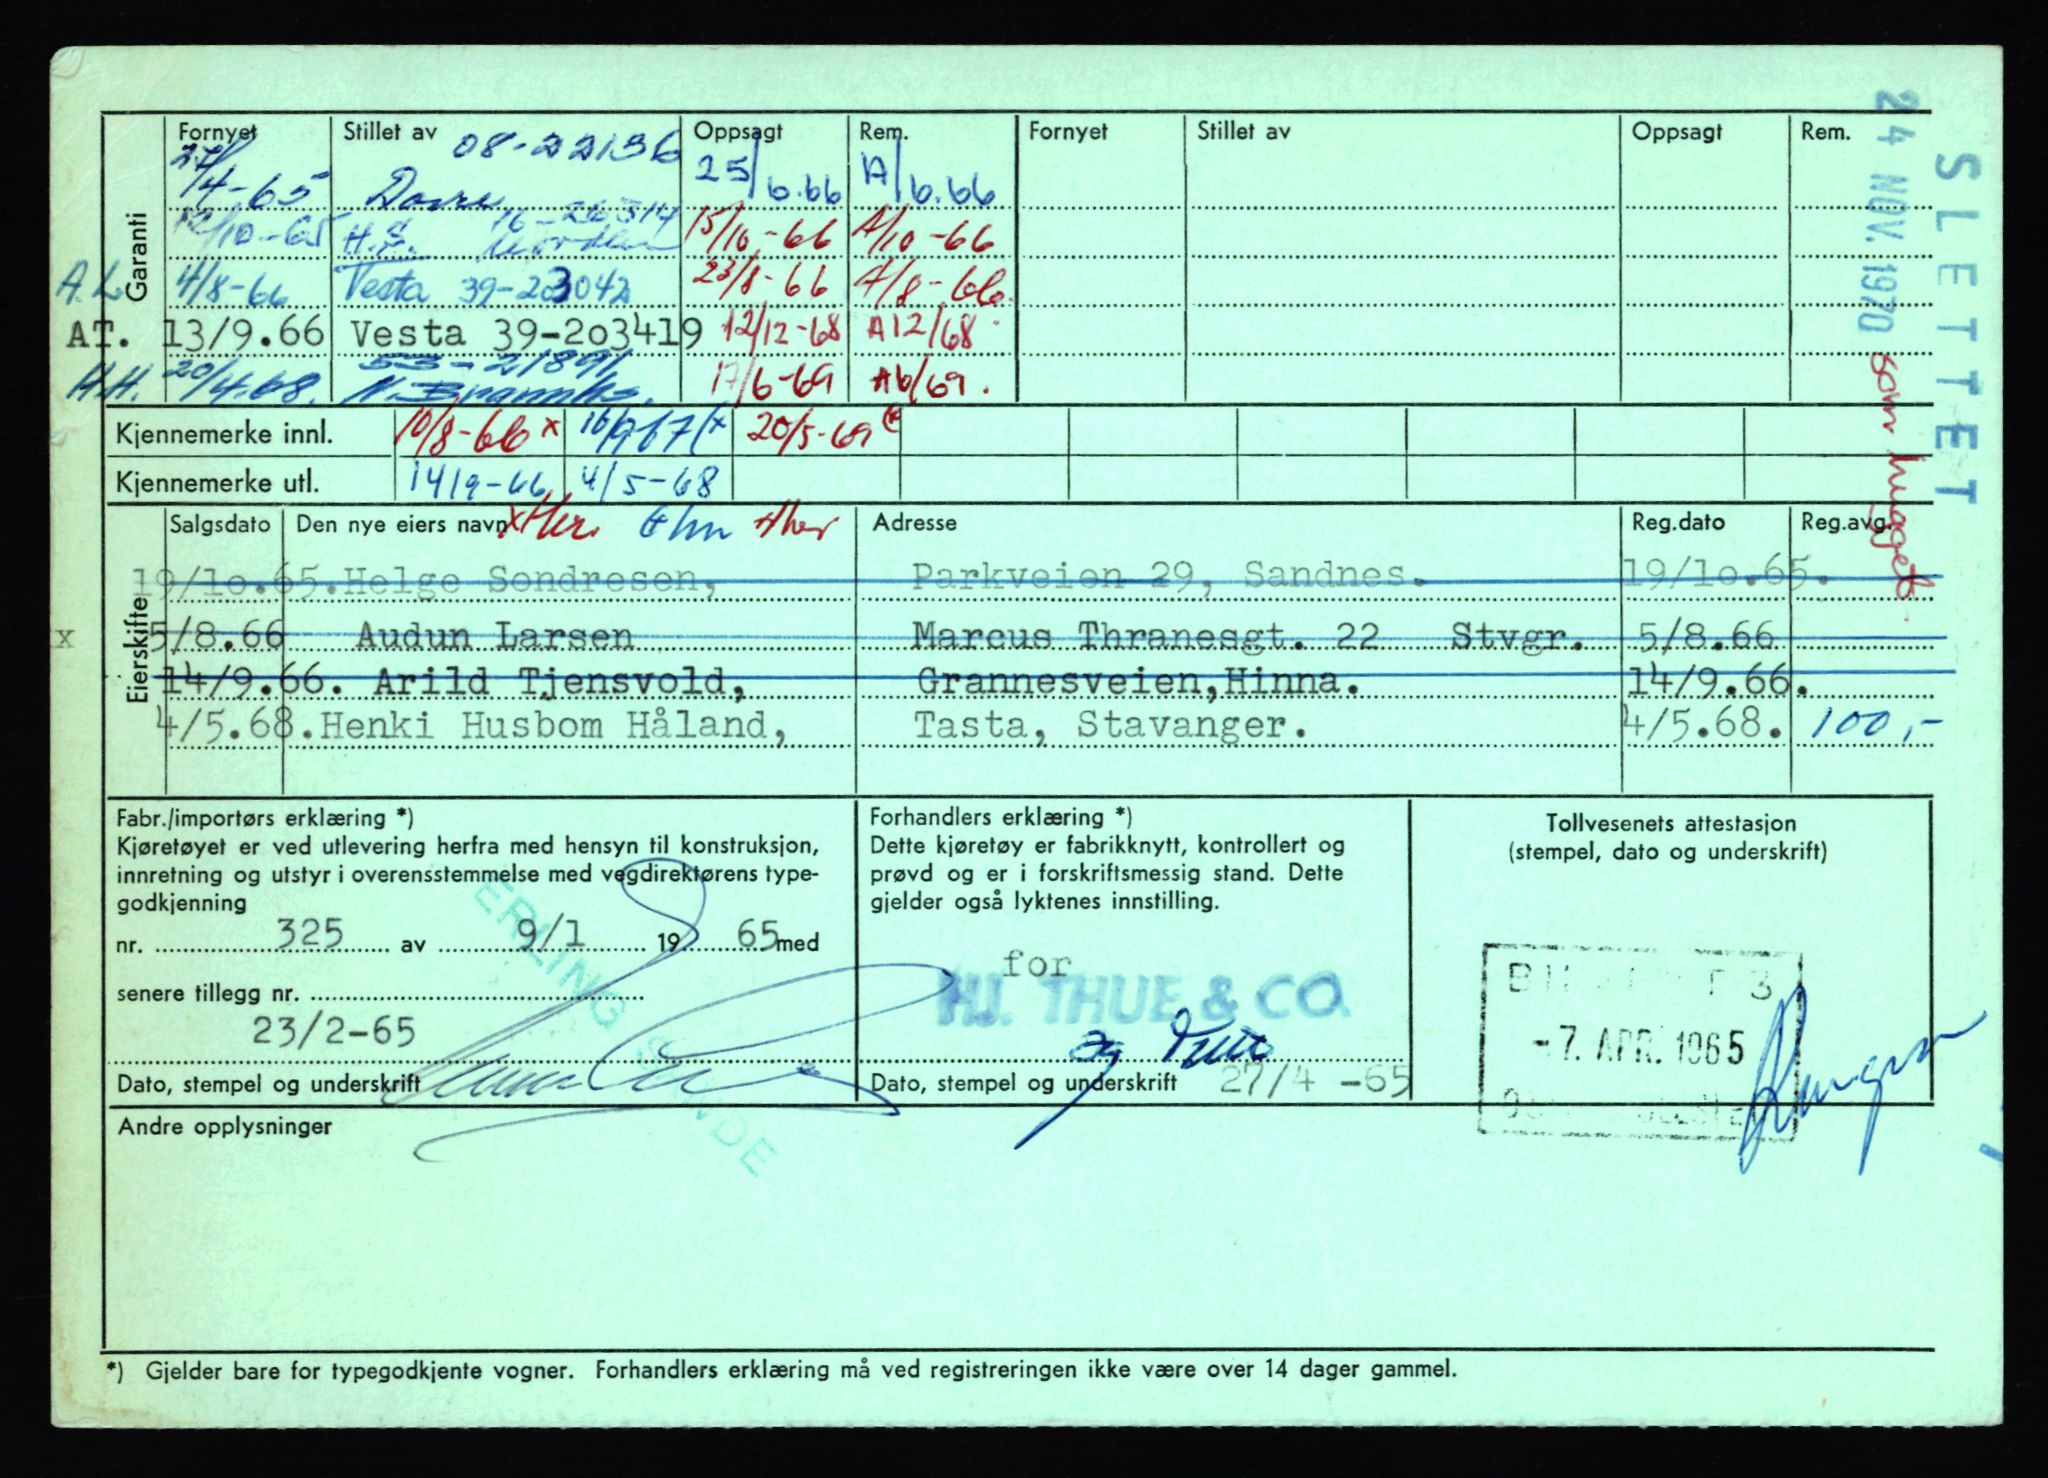 Garanti
Fornyet Stillet av Oppsagt Rem. Fornyet Stillet av Oppsagt Rem.
08-22136
27/4-65 Dovre 25/6.66 A/6.66
/10-65 H.S. 16-26314 15/10-66 A/10-66
A.L 4/8-66 Vesta 39-203042 23/8-66 A/8-66.
AT. 13/9.66 Vesta 39-2o3419 12/12-68 A12/68.
53-21891
H.H. 20/4.68. 17/6-69 A6/69.
Kjennemerke innl. 10/8-66 x 16/9 67 (x 20/5-69 (x
Kjennemerke utl. 14/9-66 4/5-68
Eierskifte
Salgsdato Den nye eiers navn Adresse Reg.dato Reg.avg.
19/1o.65. Helge Sondresen, Parkveien 29, Sandnes. 19/1o.65.
x 5/8.66 Audun Larsen Marcus Thranesgt. 22 Stvgr. 5/8.66
14/9.66. Arild Tjensvold, Grannesveien,Hinna. 14/9.66.
4/5.68. Henki Husbom Håland, Tasta, Stavanger. 4/5.68. 100,-
SLETTET
24 NOV. 1970
som hugget
Fabr./importørs erklæring *)
Kjøretøyet er ved utlevering herfra med hensyn til konstruksjon,
innretning og utstyr i overensstemmelse med vegdirektørens type-
godkjenning
nr. 325 av 9/1 19 65 med
senere tillegg nr.
23/2-65
ERLING SANDE
Dato, stempel og underskrift
Forhandlers erklæring *)
Dette kjøretøy er fabrikknytt, kontrollert og
prøvd og er i forskriftsmessig stand. Dette
gjelder også lyktenes innstilling.
for
HJ. THUE & CO.
Dato, stempel og underskrift 27/4 -65
Tollvesenets attestasjon
(stempel, dato og underskrift)
-7. APR. 1965
Andre opplysninger
*) Gjelder bare for typegodkjente vogner. Forhandlers erklæring må ved registreringen ikke være over 14 dager gammel.